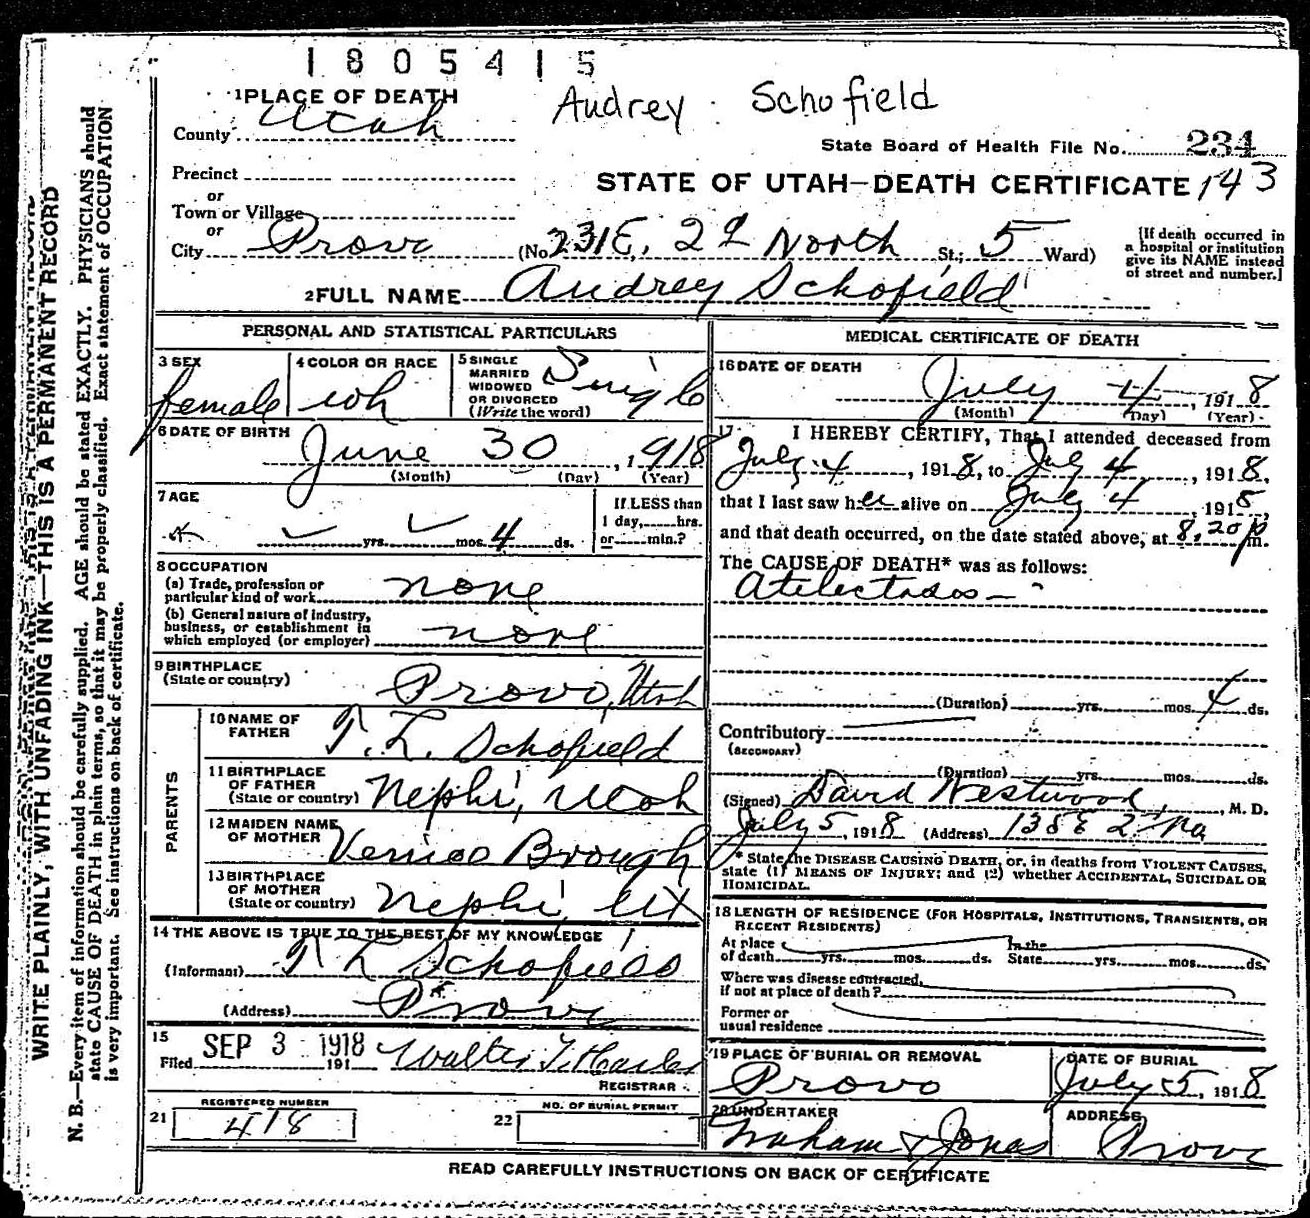 1805415
Audrey Schofield
1 PLACE OF DEATH
County Utah
State Board of Health File No. 234
Precinct
STATE OF UTAH—DEATH CERTIFICATE 143
or
Town or Village
or
City Provo (No 231 E. 2d North St.; 5 Ward)
[If death occurred in a hospital or institution give its NAME instead of street and number.]
2 FULL NAME Audrey Schofield
PERSONAL AND STATISTICAL PARTICULARS
3 SEX female
4 COLOR OR RACE wh
5 SINGLE MARRIED WIDOWED OR DIVORCED (Write the word) Single
6 DATE OF BIRTH June 30, 1918
(Month) (Day) (Year)
7 AGE yrs. mos. 4 ds.
If LESS than 1 day, hrs. or min.?
8 OCCUPATION
(a) Trade, profession or particular kind of work none
(b) General nature of industry, business, or establishment in which employed (or employer) none
9 BIRTHPLACE (State or country) Provo, Utah
PARENTS
10 NAME OF FATHER T. L. Schofield
11 BIRTHPLACE OF FATHER (State or country) Nephi, Utah
12 MAIDEN NAME OF MOTHER Brough
13 BIRTHPLACE OF MOTHER (State or country) Nephi
14 THE ABOVE IS TRUE TO THE BEST OF MY KNOWLEDGE
(Informant) T L Schofield
(Address) Provo
15 Filed SEP 3 1918 191 Walter T.
REGISTRAR
21 REGISTERED NUMBER 418
22 NO. OF BURIAL PERMIT
MEDICAL CERTIFICATE OF DEATH
16 DATE OF DEATH July 4, 1918
(Month) (Day) (Year)
17 I HEREBY CERTIFY, That I attended deceased from
July 4, 1918, to July 4, 1918,
that I last saw her alive on July 4, 1918,
and that death occurred, on the date stated above, at 8.20 p m.
The CAUSE OF DEATH* was as follows:
(Duration) yrs. mos. 4 ds.
Contributory (SECONDARY)
(Duration) yrs. mos. ds.
(Signed) David Westwood, M. D.
July 5, 1918 (Address) 138 E 2nd No
* State the DISEASE CAUSING DEATH, or, in deaths from VIOLENT CAUSES, state (1) MEANS OF INJURY; and (2) whether ACCIDENTAL, SUICIDAL OR HOMICIDAL.
18 LENGTH OF RESIDENCE (FOR HOSPITALS, INSTITUTIONS, TRANSIENTS, OR RECENT RESIDENTS)
At place of death yrs. mos. ds. In the State yrs. mos. ds.
Where was disease contracted, if not at place of death?
Former or usual residence
19 PLACE OF BURIAL OR REMOVAL Provo
DATE OF BURIAL July 5, 1918
20 UNDERTAKER Graham & Jones
ADDRESS Provo
READ CAREFULLY INSTRUCTIONS ON BACK OF CERTIFICATE
WRITE PLAINLY, WITH UNFADING INK—THIS IS A PERMANENT RECORD
N. B.—Every item of information should be carefully supplied. AGE should be stated EXACTLY. PHYSICIANS should
state CAUSE OF DEATH in plain terms, so that it may be properly classified. Exact statement of OCCUPATION
is very important. See instructions on back of certificate.